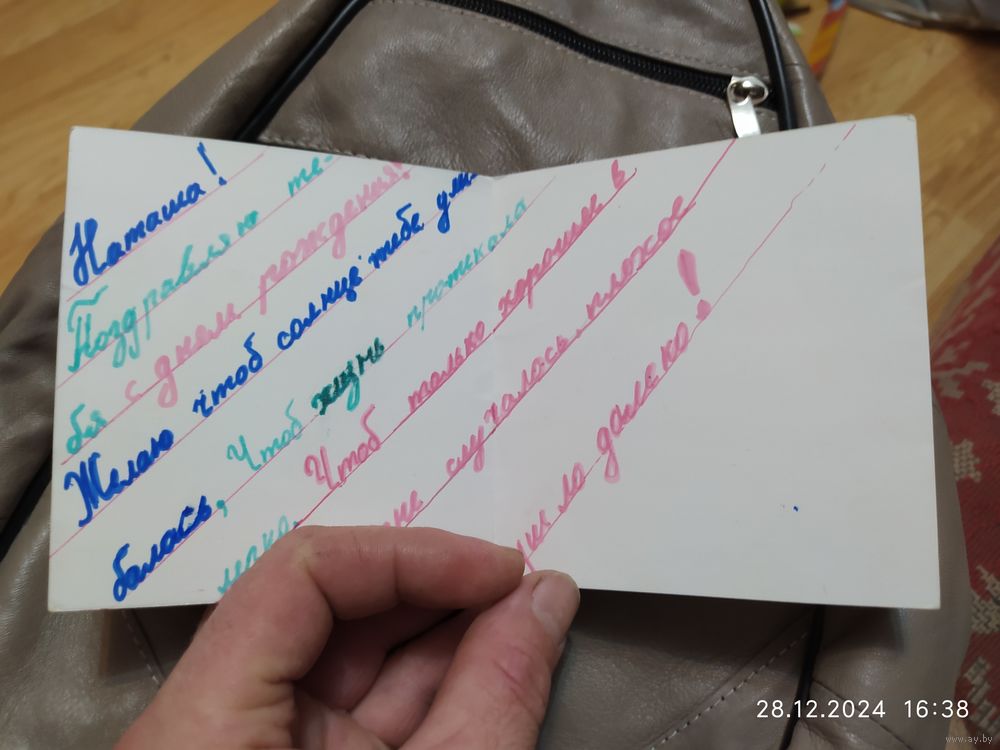 Наташа!
Поздравляю те-
бя с днем рождения!
Желаю чтоб солнце тебе улы-
балась, Чтоб жизнь протикала
Чтоб только хорошее в
не случалось плохое
ушло далеко!
28.12.2024 16:38
www.ay.by